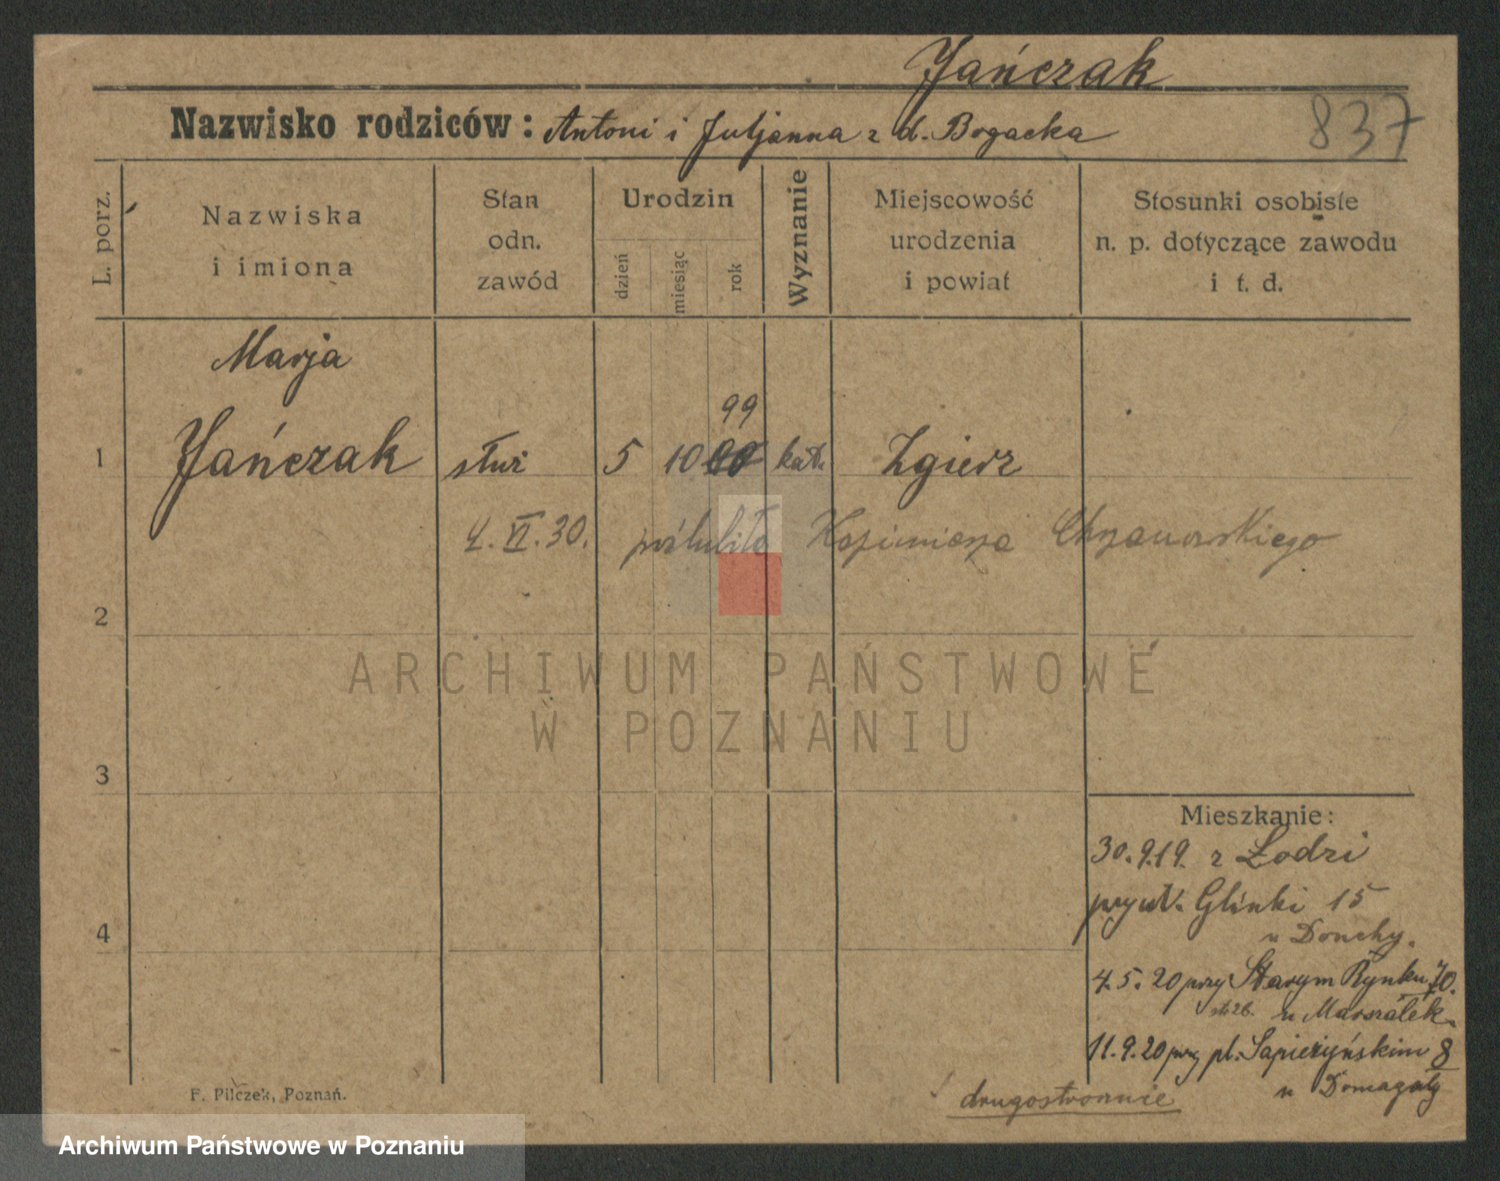 Jańczak
837
Nazwisko rodziców: Antoni i Juljanna z d. Bogacka
L. porz.
Nazwiska
i imiona
Stan
odn.
zawód
Urodzin
dzień
miesiąc
rok
Wyznanie
Miejscowość
urodzenia
i powiat
Stosunki osobiste
n. p. dotyczące zawodu
i t. d.
Marja
99
1 Jańczak służ 5 10 00 kat. Zgierz
4. VI. 30. poślubiła Kazimierza Chrzanowskiego
2
ARCHIWUM PAŃSTWOWE
W POZNANIU
3
Mieszkanie:
30.9.19. z Łodzi
przy ul. Glinki 15
4
u Donchy.
4.5.20 przy Starym Rynku 70.
u Marszałek.
11.9.20 przy pl. Sapieżyńskim 8
u Domagały
drugostronnie
F. Pilczek, Poznań.
Archiwum Państwowe w Poznaniu